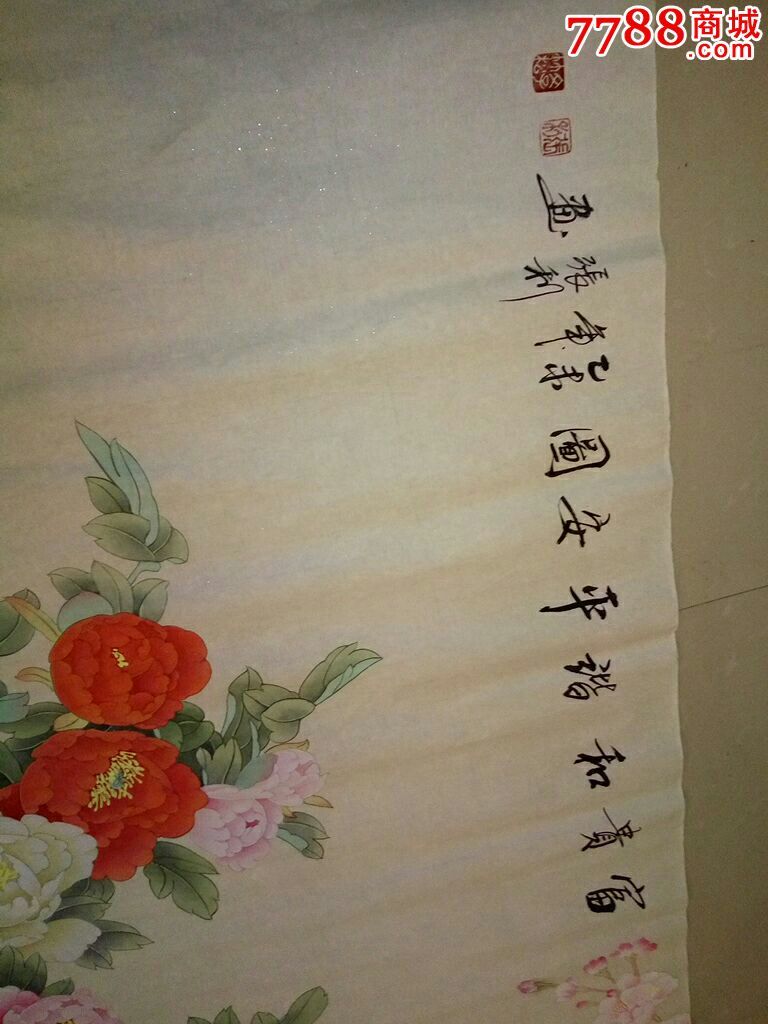 7788商城
.com
富貴和諧平安圖
乙未年
張利
畫